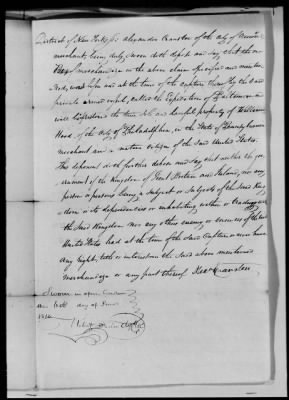 District of New York ss Alexander Cranston of the city of
merchant, being duly sworn doth depose and say that the
merchandize in the above claim specified and
was before and at the time of the capture thereof by the said
private armed vessel, called the Expedition of Baltimore as
well before the true sole and lawful property of William
Hood, of the City of Philadelphia, in the State of Pennsylvania
merchant and a native citizen of the said United States.
This deponent doth further depose and say that neither the gov
ernment of the Kingdom of Great Britain and Ireland, nor any
person or persons being a subject or subjects of the said King
dom or its dependencies or inhabiting within or trading
the said Kingdom nor any other enemy or enemies of the
United States had at the time of the said Capture or now have
any right, title or interest in the said above mentioned
merchandize or any part thereof Alexr Cranston
Sworn in open Court
day of June